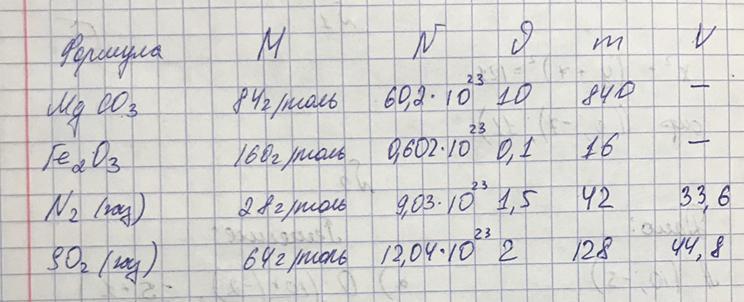 Формула M N ϑ m V
MgCO₃ 84г/моль 60,2·10²³ 10 840 —
Fe₂O₃ 160г/моль 0,602·10²³ 0,1 16 —
N₂ (газ) 28г/моль 9,03·10²³ 1,5 42 33,6
SO₂ (газ) 64г/моль 12,04·10²³ 2 128 44,8